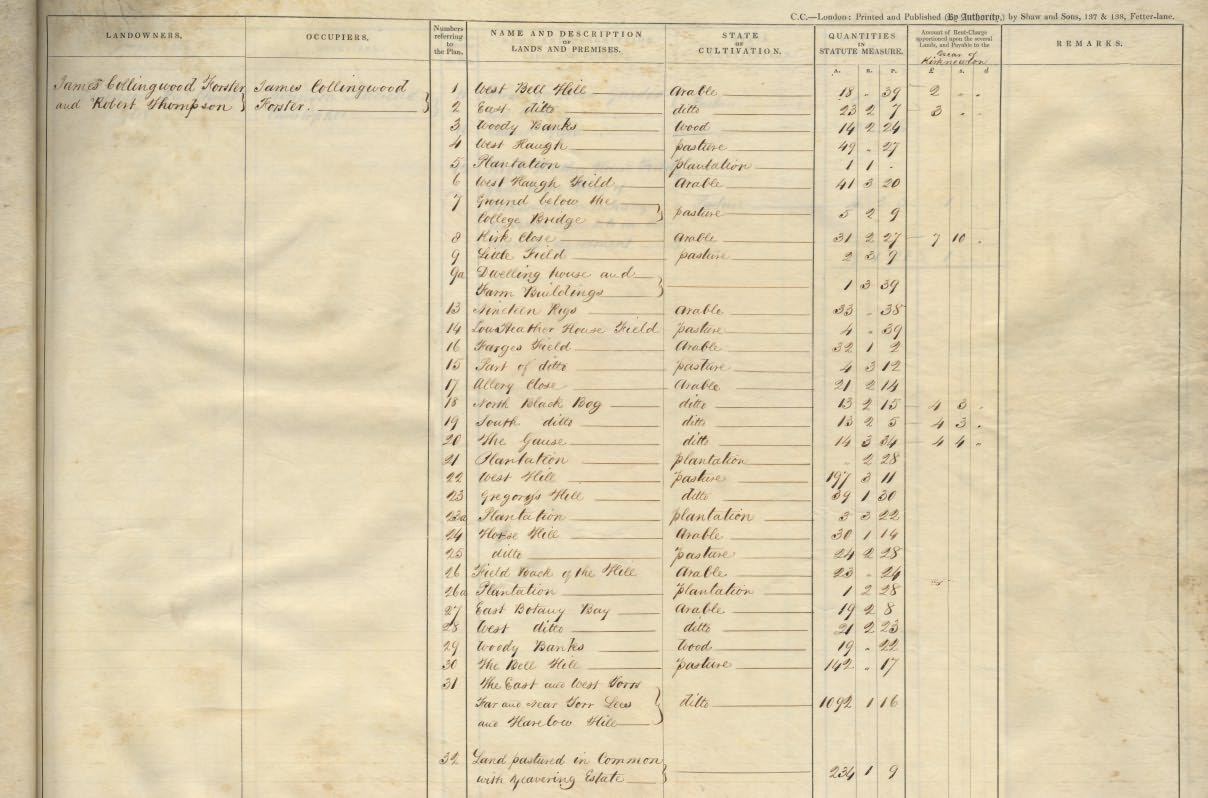 C.C.—London: Printed and Published (By Authority,) by Shaw and Sons, 137 & 138, Fetter-lane.
LANDOWNERS. OCCUPIERS. Numbers referring to the Plan. NAME AND DESCRIPTION OF LANDS AND PREMISES. STATE OF CULTIVATION. QUANTITIES IN STATUTE MEASURE. Amount of Rent-Charge apportioned upon the several Lands, and Payable to the Vicar of Kirknewton REMARKS.
A. R. P. £ s. d
James Collingwood Forster James Collingwood 1 West Bell Hill Arable 18 . 39 2 . .
and Robert Thompson } Forster. } 2 East ditto ditto 23 2 7 3 . .
3 Woody Banks Wood 14 2 24
4 West Haugh pasture 49 . 27
5 Plantation plantation 1 1 .
6 West Haugh Field Arable 41 3 20
7 Ground below the
College Bridge } pasture 5 2 9
8 Kirk Close Arable 31 2 27 7 10 .
9 Little Field pasture 2 3 9
9a Dwelling house and
Farm Buildings } 1 3 39
13 Nineteen Rigs Arable 33 . 38
14 Heather House Field Pasture 4 . 39
16 Farges Field Arable 32 1 2
15 Part of ditto pasture 4 3 12
17 Allery Close Arable 21 2 14
18 North Black Bog ditto 13 2 15 4 3 .
19 South ditto ditto 13 2 5 4 3 .
20 The Gause ditto 14 3 34 4 4 .
21 Plantation plantation . 2 28
22 West Hill pasture 197 3 11
23 Gregorys Hill ditto 39 1 30
23a Plantation plantation 3 3 22
24 Horse Hill Arable 30 1 14
25 ditto Pasture 24 2 28
26 Field Back of the Hill Arable 23 . 24
26a Plantation Plantation 1 2 28
27 East Botany Bay Arable 19 2 8
28 West ditto ditto 21 2 23
29 Woody Banks Wood 19 . 22
30 The Bell Hill Pasture 142 . 17
31 The East and West Torrs
Far and near Torr Lees } ditto 1092 1 16
and Harelow Hill
32 Land pastured in Common
with Yeavering Estate } 234 1 9